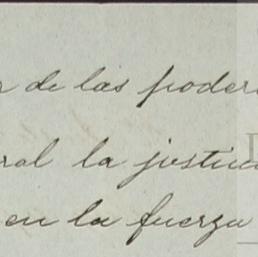 r de las poder
ral la justici
en la fuerza